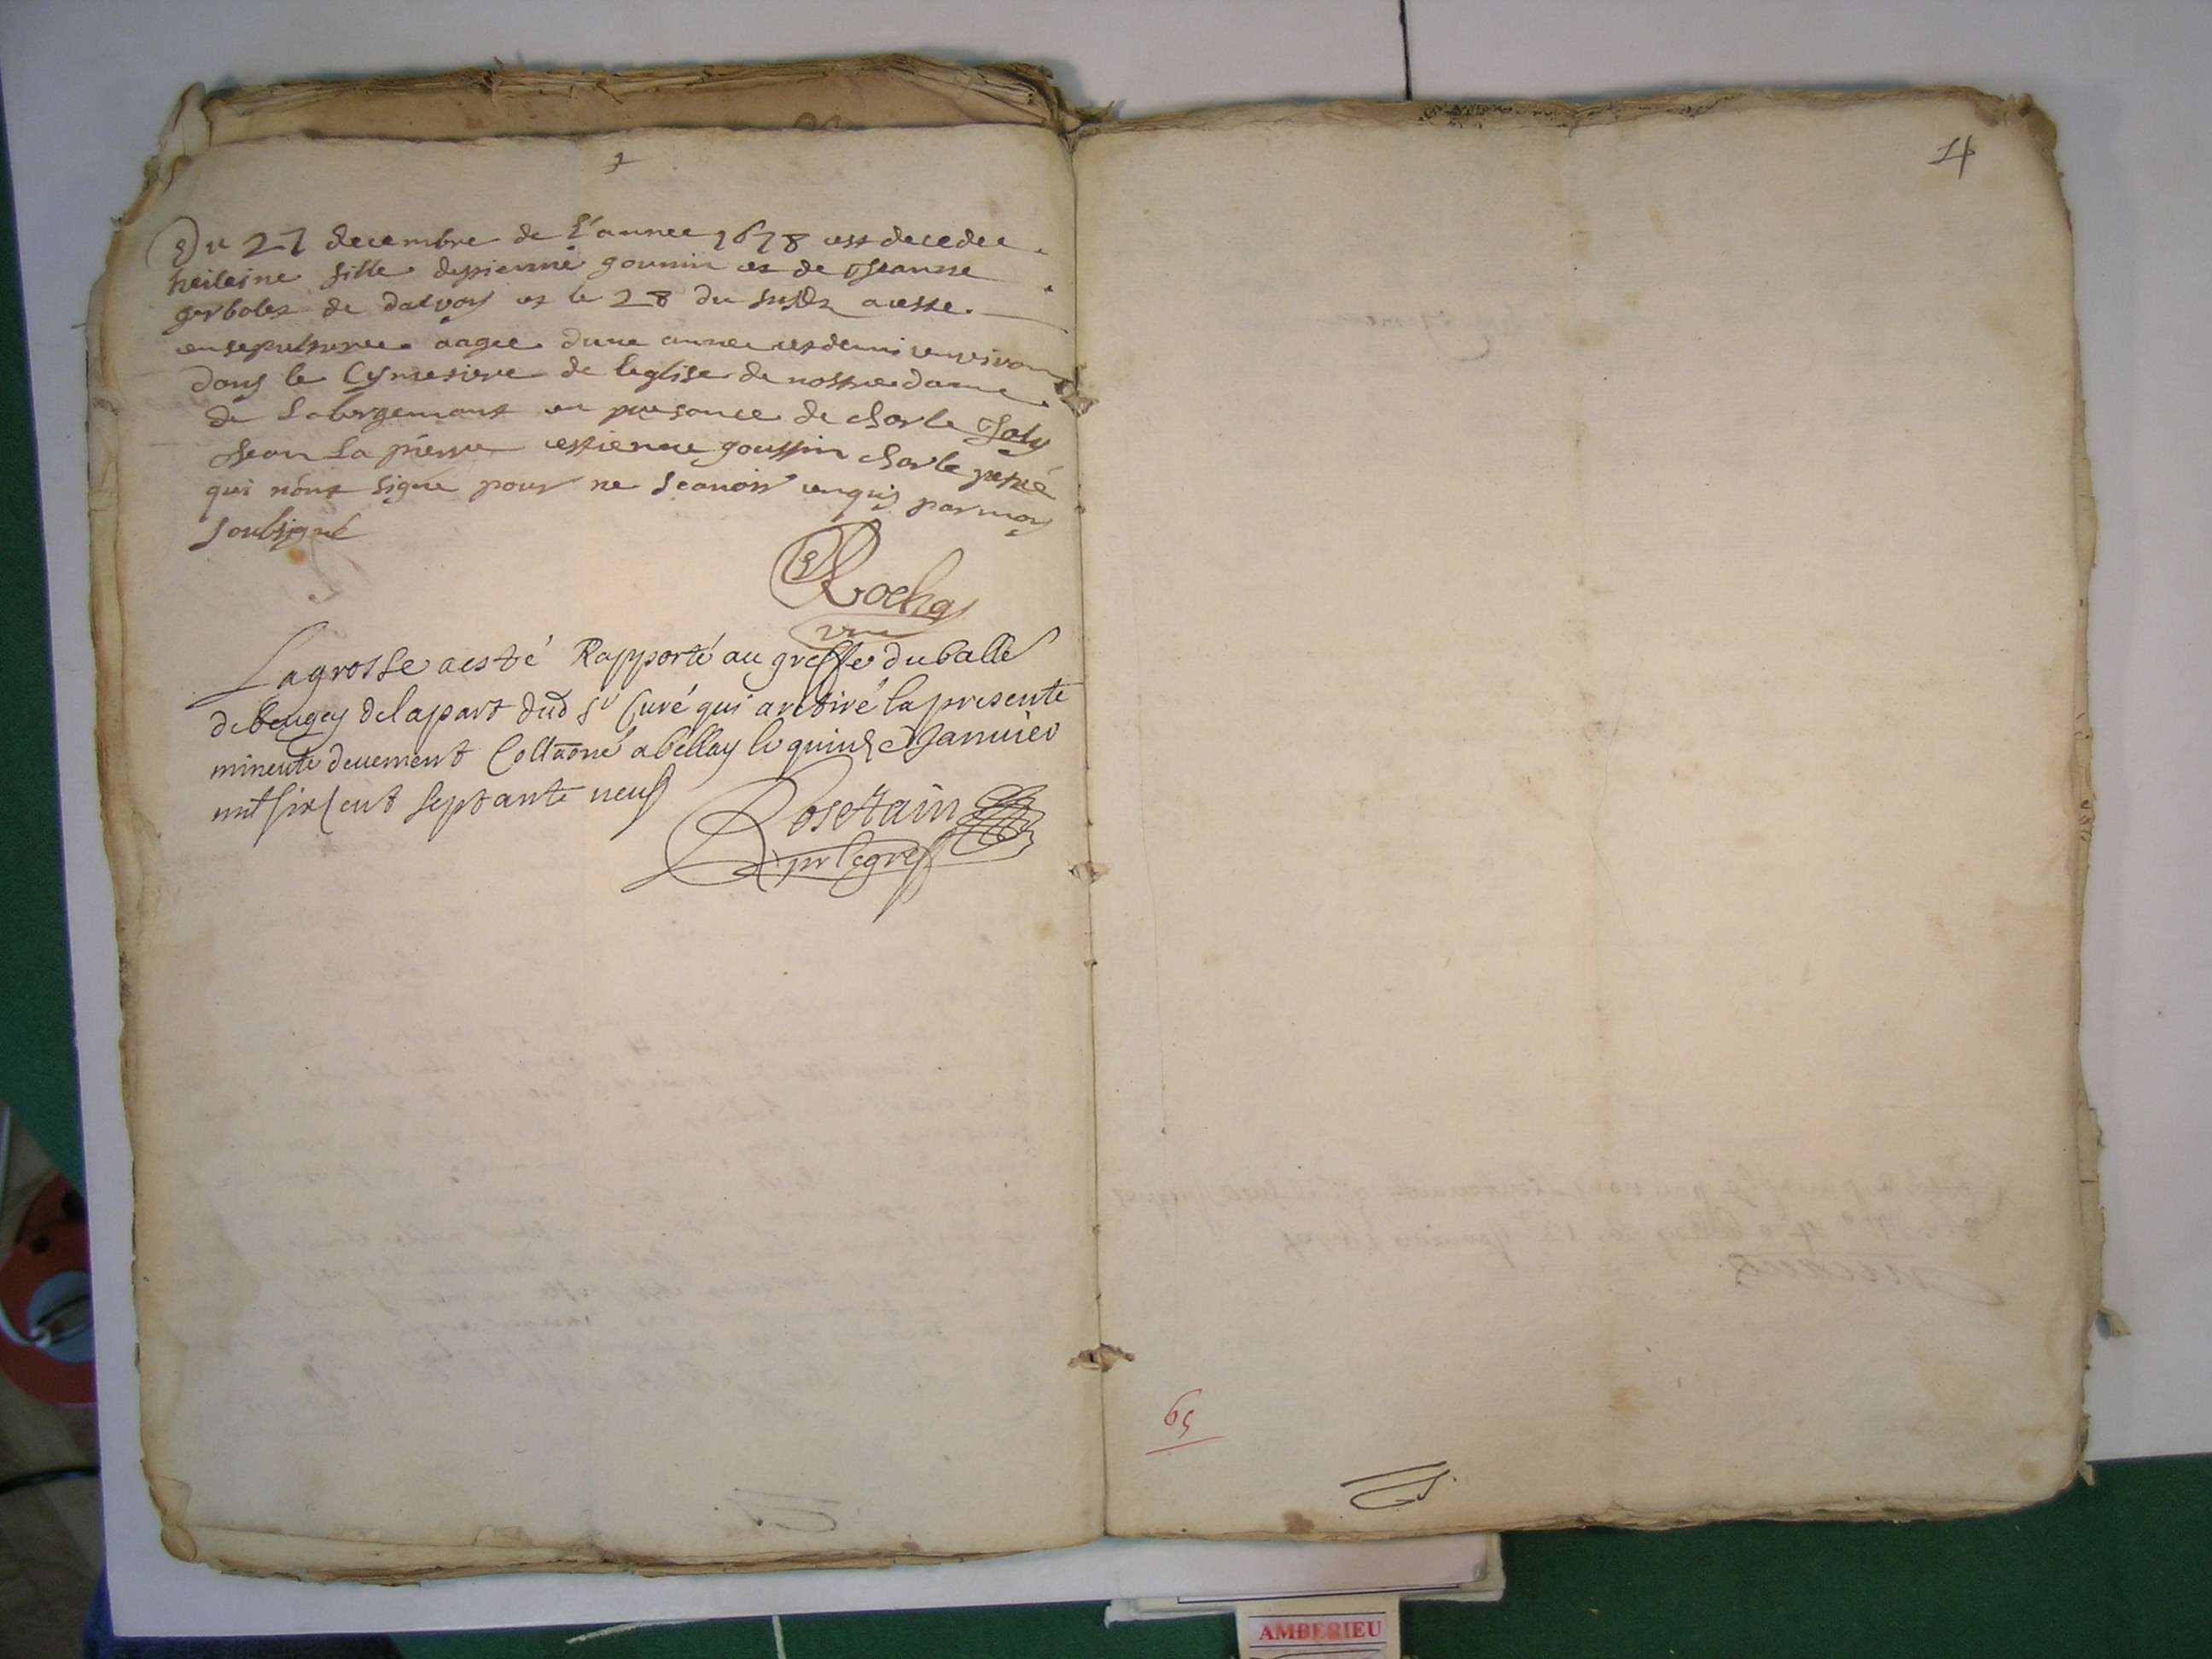 Du 27 decembre de l'annee 1678 est decedee
heileine fille de pierre gounin et de Jeanne
de et le 28 du susd a este
ensepulturee aagee dune annee et demi environ
dans le Cymetiere de leglise de nostre dame
de Labergement en presance de charle Joly
Jean La pierre estienne goussin charle
qui nont signe pour ne scauoir enquis par moy
soubsigné
Rochas
La grosse a esté Rapporté au greffe du balle
de beugey de la part dud Sr Curé qui a retiré la presente
minente deuement Collaoné a bellay le quinze Januier
mil six cent septante neuf
Rosetain
pr le gref
4
65
AMBERIEU